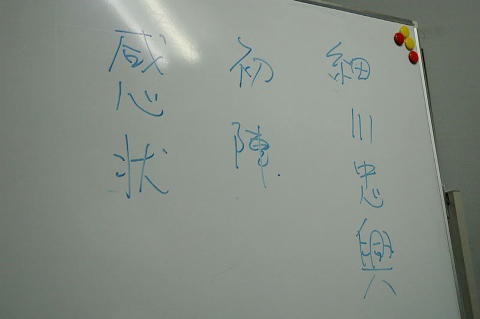 細川忠興
初陣
感心状